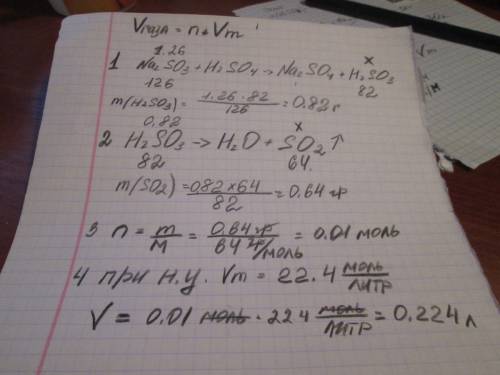 Vгаза = n * Vm
1.26 x
1 Na2SO3 + H2SO4 → Na2SO4 + H2SO3
126 82
m(H2SO3) = 1.26 · 82 / 126 = 0.82 г
0,82 x
2 H2SO3 → H2O + SO2 ↑
82 64.
m(SO2) = 0.82 × 64 / 82 = 0.64 гр
3 n = m / M = 0.64 гр / 64 гр/моль = 0.01 моль
4 при н.у. Vm = 22.4 моль / литр
V = 0.01 моль · 224 моль / литр = 0.224 л